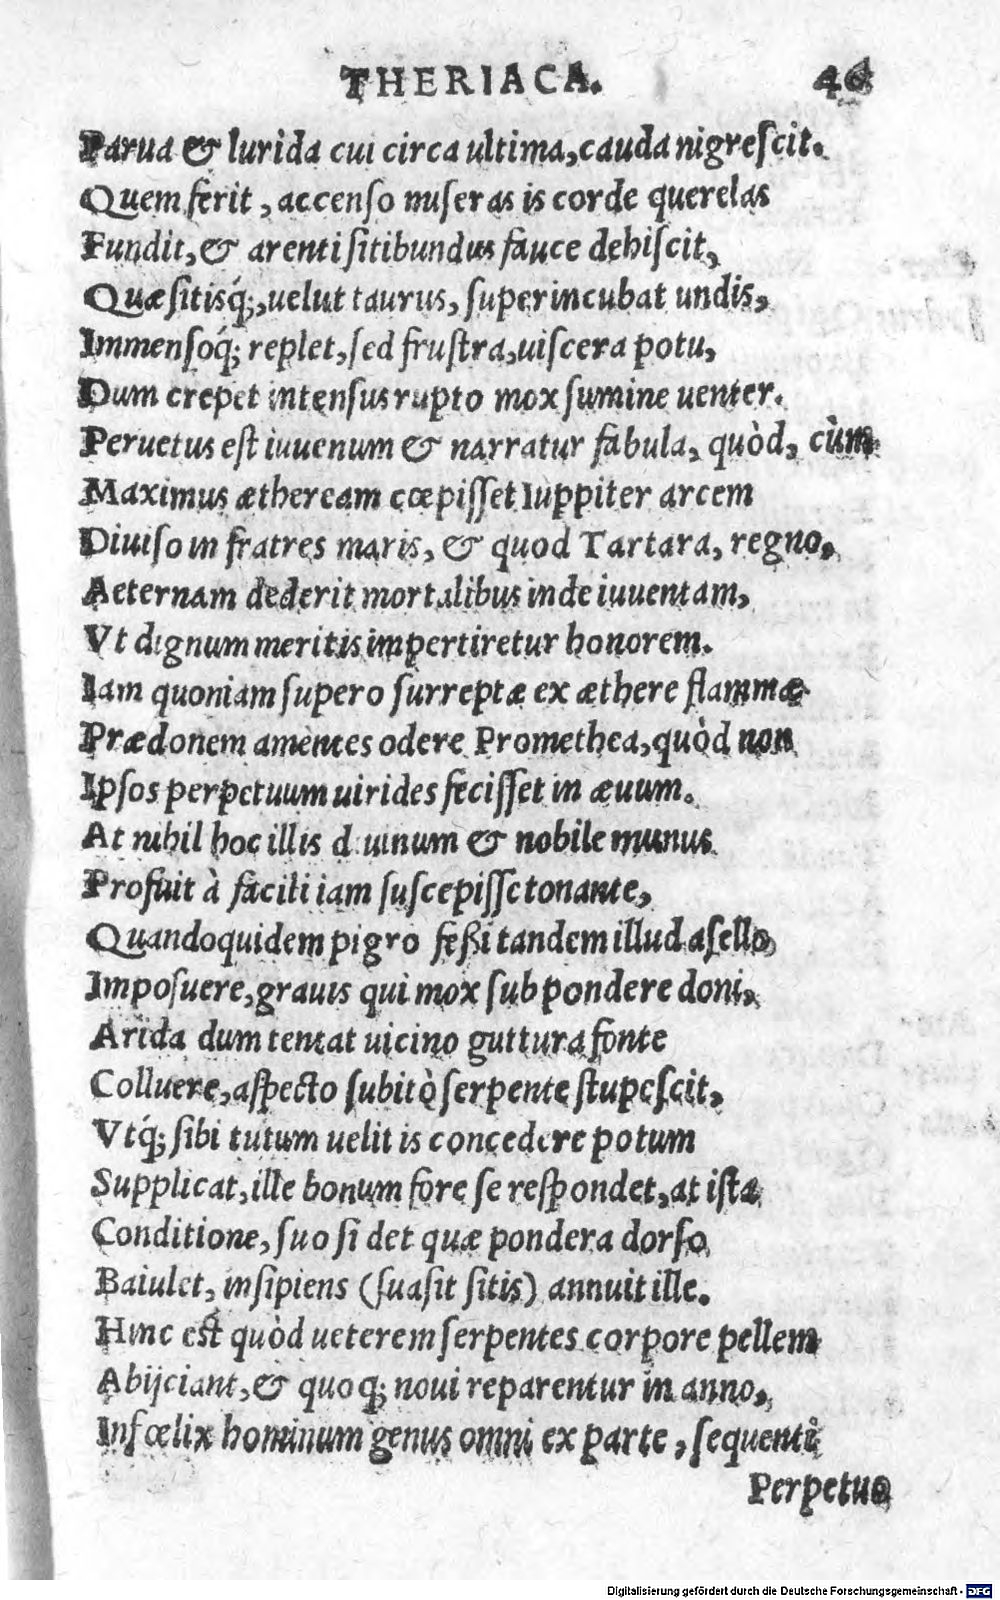 THERIACA. 46
Parua & lurida cui circa ultima, cauda nigreſcit.
Quem ferit, accenſo miſeras is corde querelas
Fundit, & arenti ſitibundus fauce dehiſcit,
Quæſitisq́;, uelut taurus, ſuper incubat undis,
Immenſoq́; replet, ſed fruſtra, uiſcera potu,
Dum crepet intenſus rupto mox ſumine uenter.
Peruetus eſt iuuenum & narratur fabula, quòd, cùm
Maximus ætheream cœpiſſet Iuppiter arcem
Diuiſo in fratres maris, & quod Tartara, regno,
Aeternam dederit mortalibus inde iuuentam,
Vt dignum meritis impertiretur honorem.
Iam quoniam ſupero ſurreptæ ex æthere flammæ
Prædonem amentes odere Promethea, quòd non
Ipſos perpetuum uirides feciſſet in æuum.
At nihil hoc illis diuinum & nobile munus
Profuit à facili iam ſuſcepiſſe tonante,
Quandoquidem pigro feßi tandem illud aſello
Impoſuere, grauis qui mox ſub pondere doni,
Arida dum tentat uicino guttura fonte
Colluere, aſpecto ſubitò ſerpente ſtupeſcit,
Vtq́; ſibi tutum uelit is concedere potum
Supplicat, ille bonum fore ſe reſpondet, at iſta
Conditione, ſuo ſi det quæ pondera dorſo
Baiulet, inſipiens (ſuaſit ſitis) annuit ille.
Hinc eſt quòd ueterem ſerpentes corpore pellem
Abijciant, & quoq; noui reparentur in anno,
Infœlix hominum genus omni ex parte, ſequenti
Perpetuo
Digitalisierung gefördert durch die Deutsche Forschungsgemeinschaft - DFG